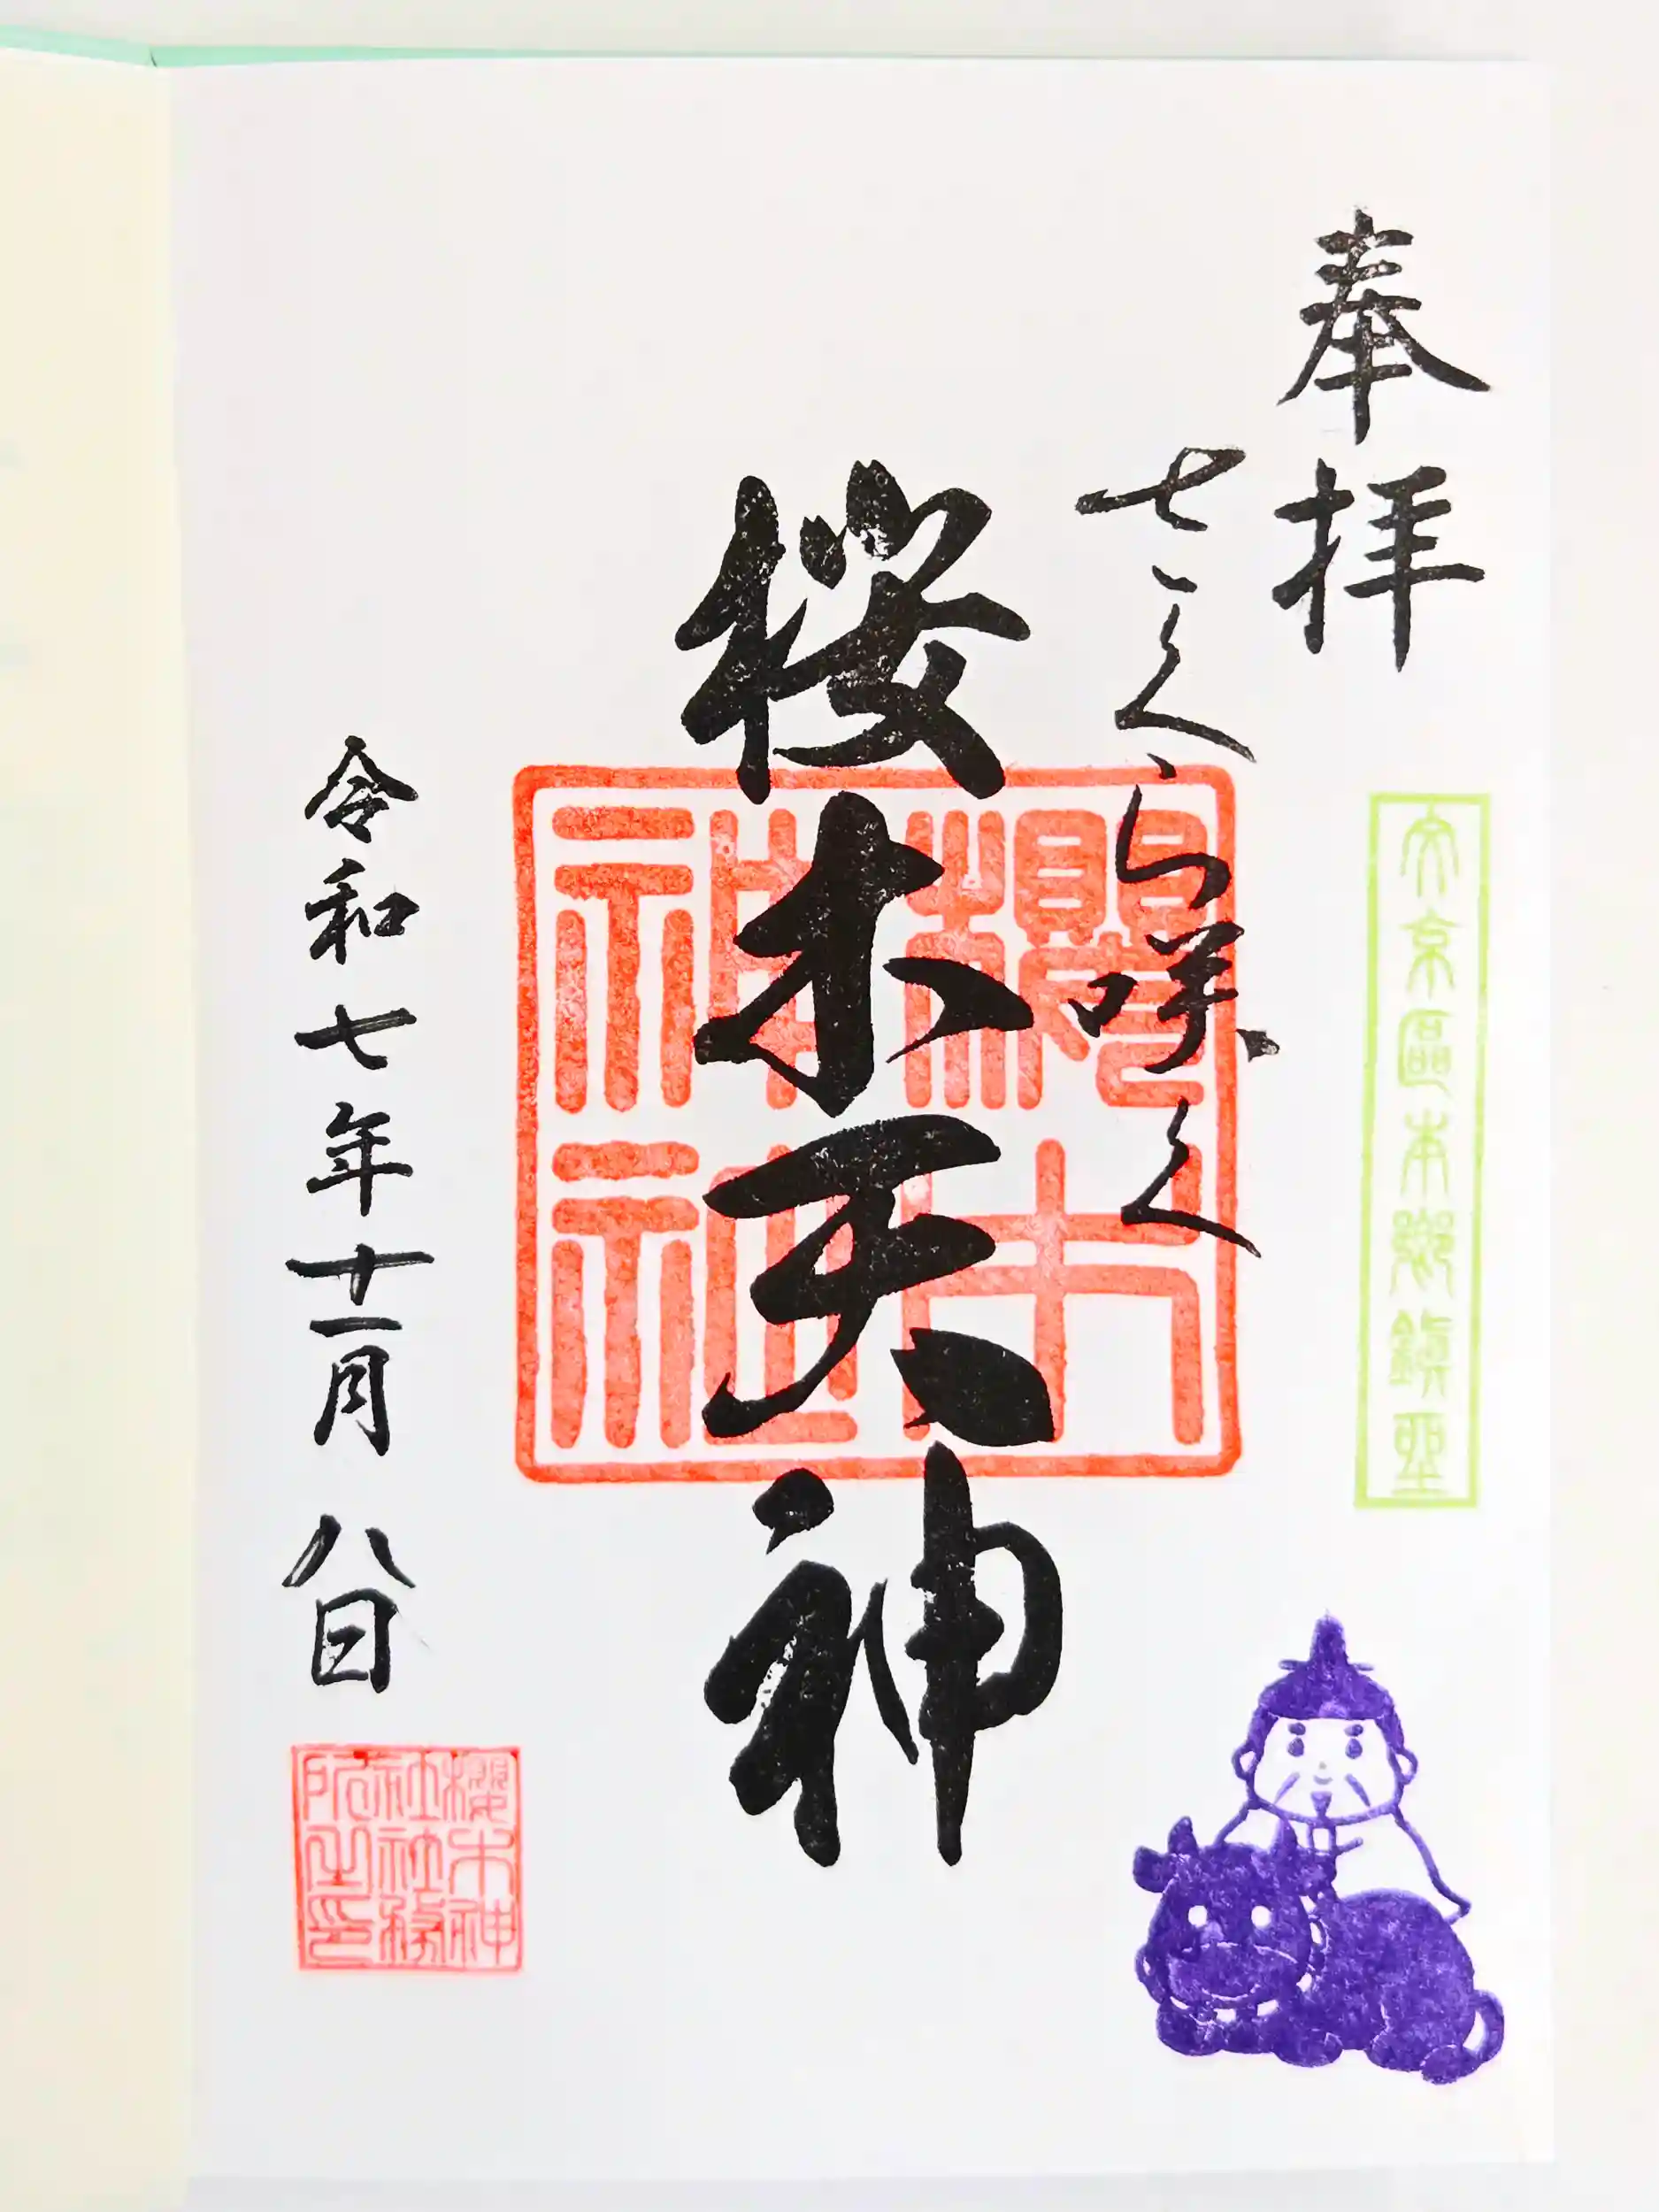 奉拝
さくら咲く
文京區本郷鎮坐
櫻木神社
桜木天神
令和七年十一月八日
櫻木神
社社務
所之印